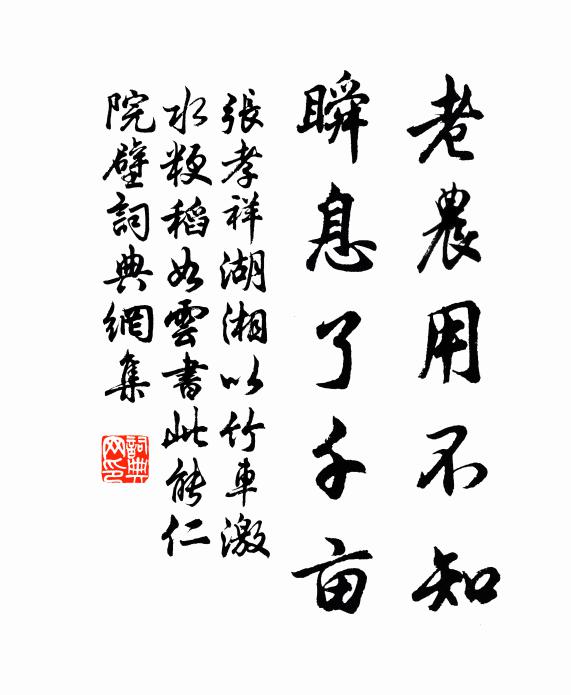 老農用不知
瞬息了千亩
張孝祥湖湘以竹車激
水粳稻如雲書此能仁
院壁詞典網集
詞典网印